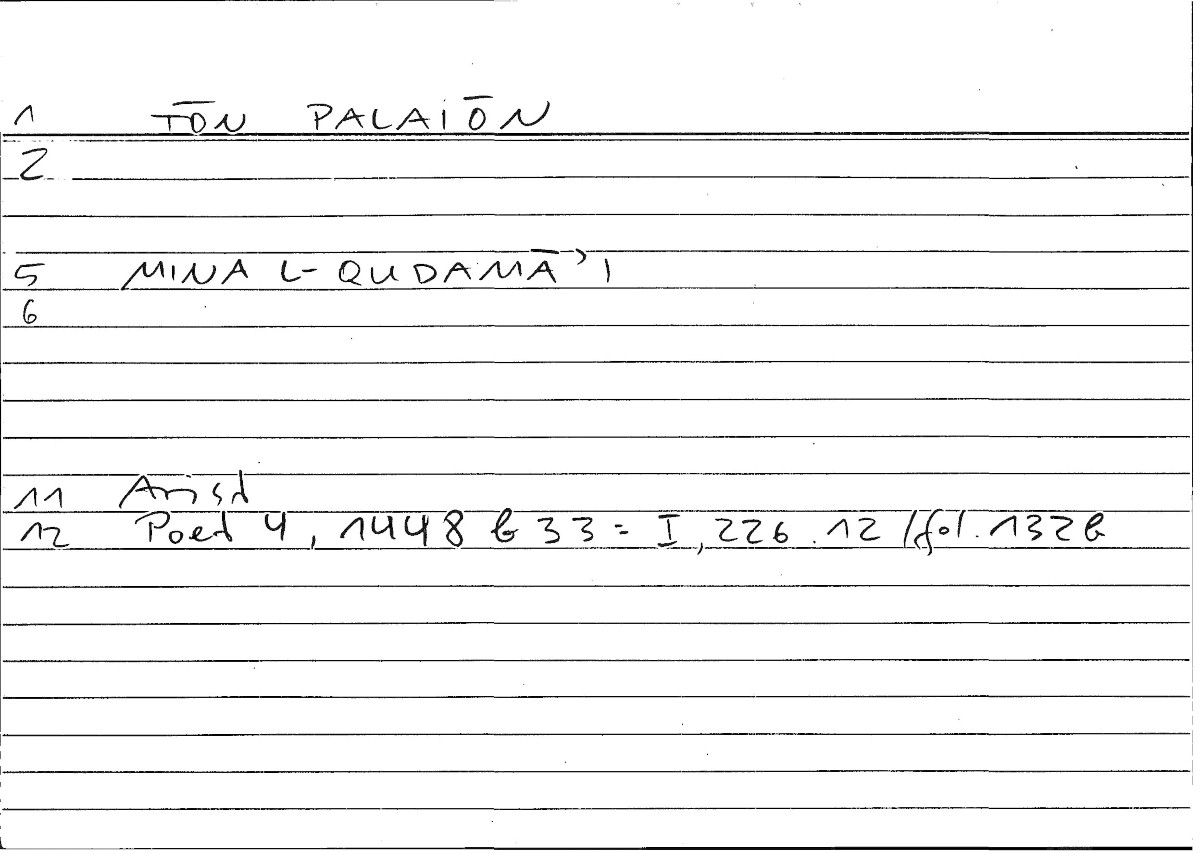 1 TŌN PALAIŌN
2
5 MINA L-QUDAMĀʾI
6
11 Arist
12 Poet 4, 1448 b 33 = I, 226.12 /fol. 132b